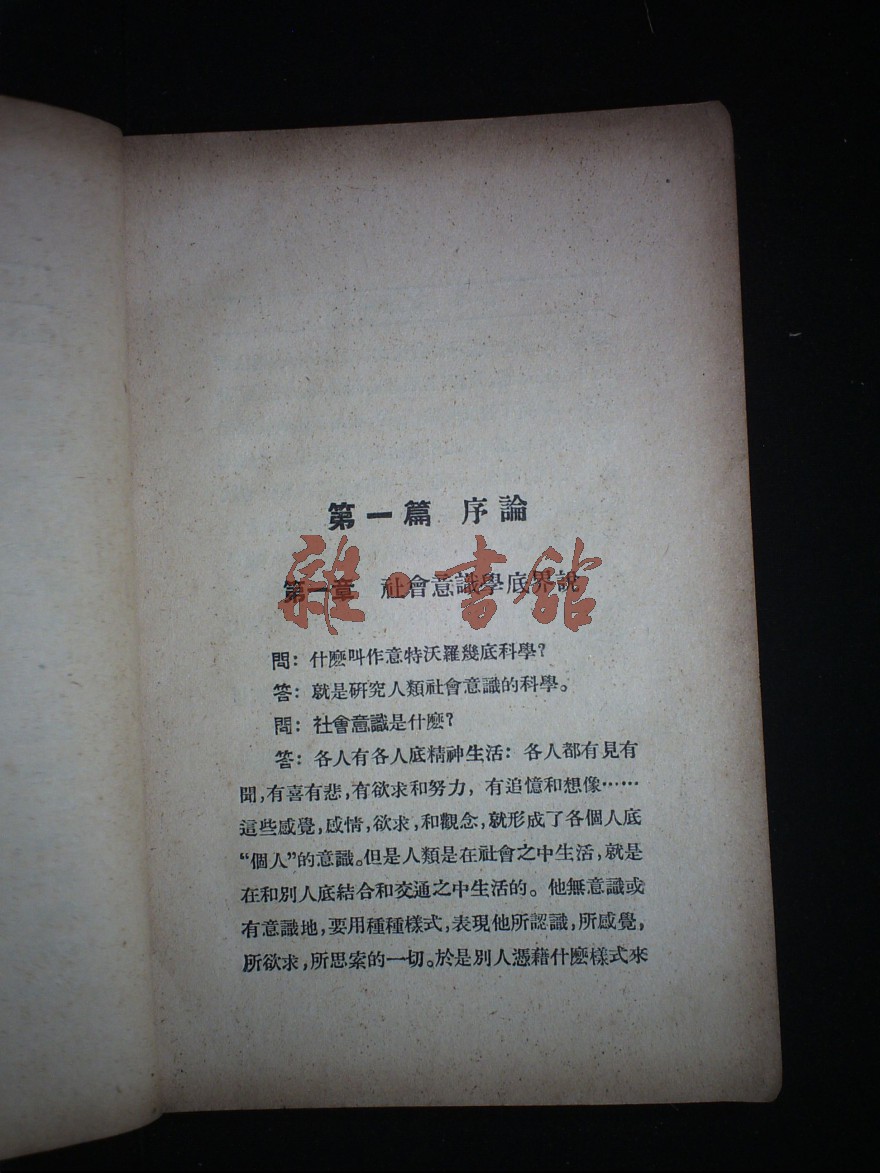 第一篇 序論
第一章 社會意識學底界說
雜·書館
問：什麽叫作意特沃羅幾底科學？
答：就是研究人類社會意識的科學。
問：社會意識是什麽？
答：各人有各人底精神生活：各人都有見有
聞，有喜有悲，有欲求和努力，有追憶和想像……
這些感覺，感情，欲求，和觀念，就形成了各個人底
“個人”的意識。但是人類是在社會之中生活，就是
在和別人底結合和交通之中生活的。他無意識或
有意識地，要用種種樣式，表現他所認識，所感覺，
所欲求，所思索的一切。於是別人憑藉什麽樣式來